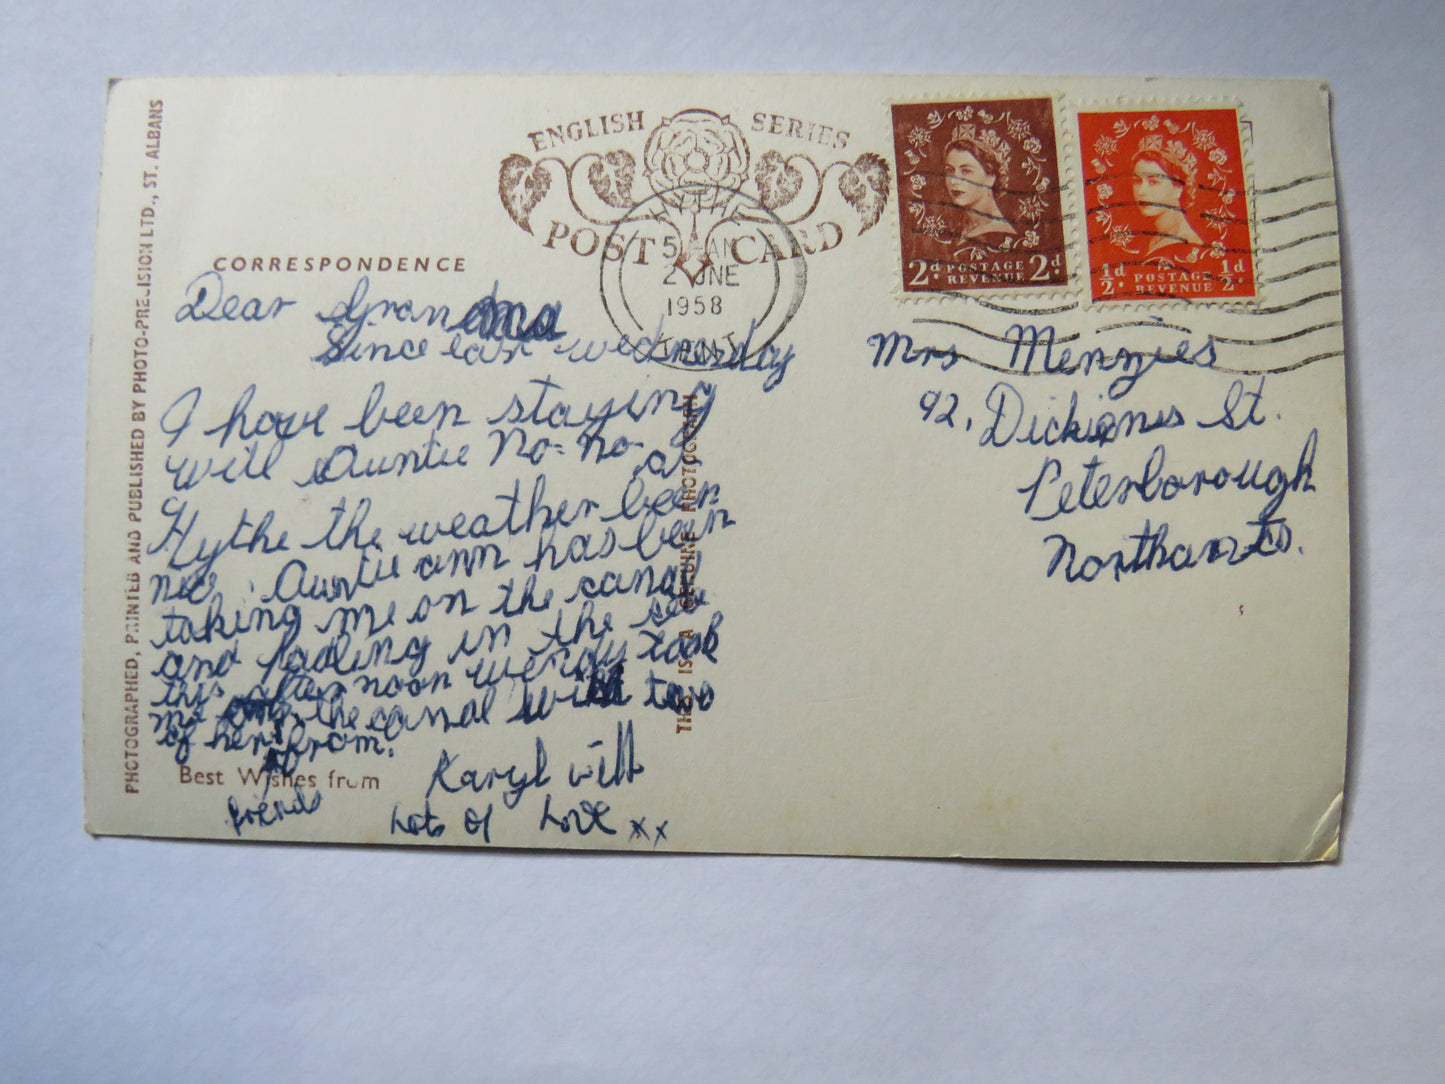 PHOTOGRAPHED, PRINTED AND PUBLISHED BY PHOTO-PRECISION LTD., ST. ALBANS
ENGLISH SERIES
POST CARD
HYTHE
2 JUNE
1958
KENT
2d. POSTAGE REVENUE 2d.
½d. POSTAGE REVENUE ½d.
CORRESPONDENCE
Dear Grandma
Since last wednesday
I have been staying
with Auntie No-No- at
Hythe the weather been
nice. Auntie ann has been
taking me on the canal
and padling in the sea
this afternoon wendy took
me on the canal with two
of her from.
friends
Karyl with
Lots of Love xx
Best Wishes from
THIS IS A GENUINE PHOTOGRAPH
Mrs Menzies
92, St.
Peterborough
Northants.